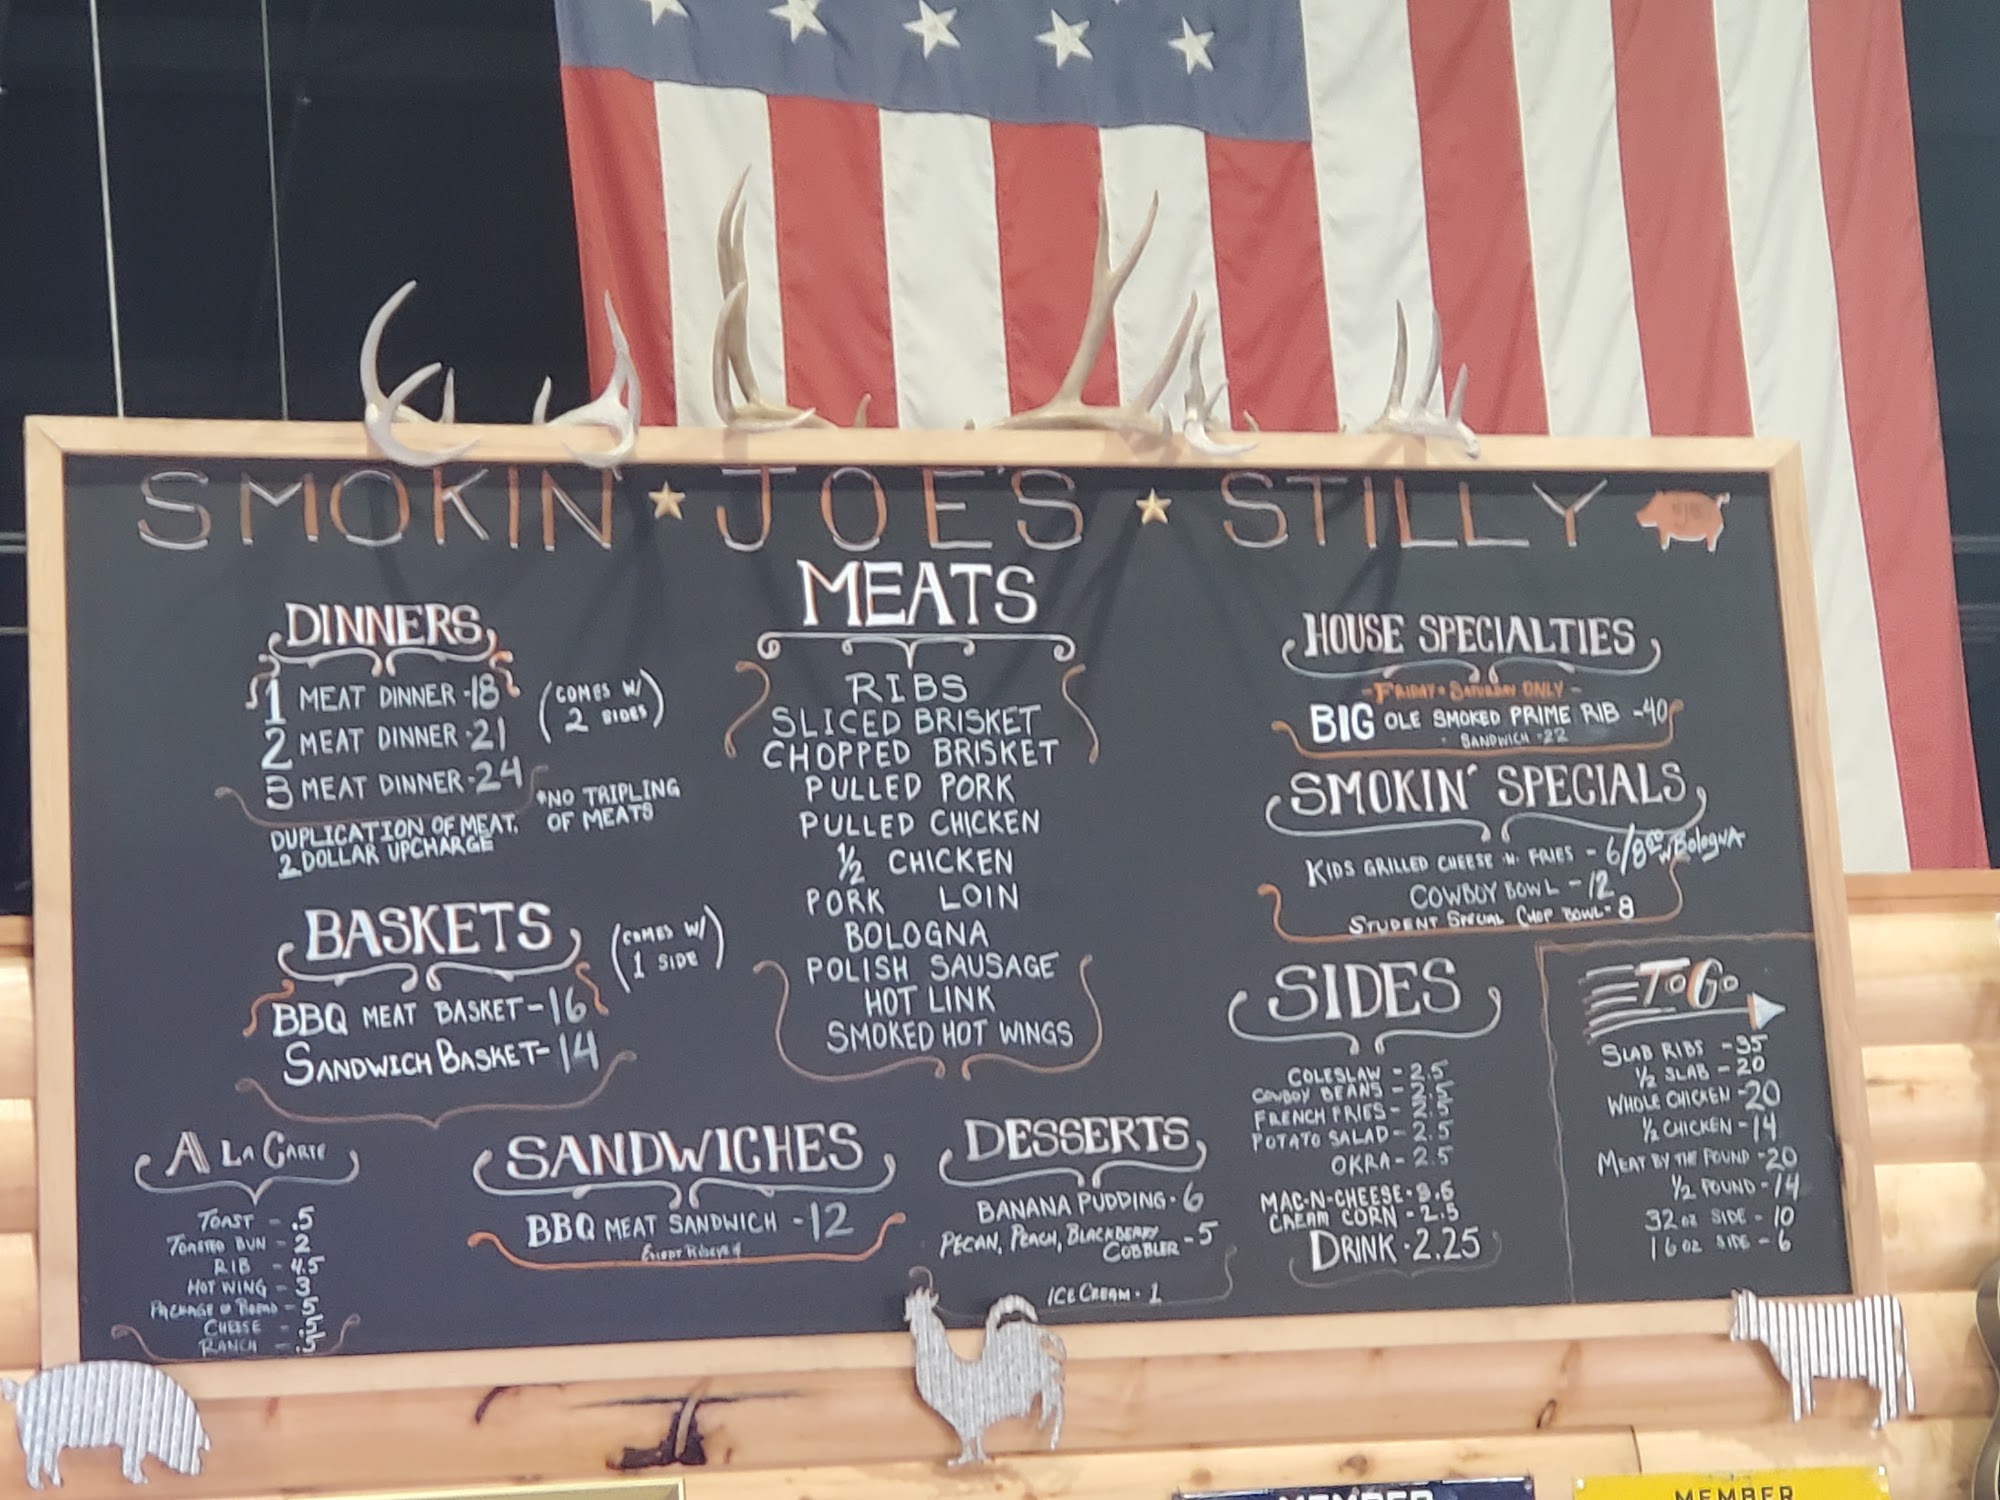 SMOKIN' JOE'S STILLY
SJS
DINNERS
1 MEAT DINNER - 18
2 MEAT DINNER - 21
3 MEAT DINNER - 24
(COMES W/
2 SIDES)
DUPLICATION OF MEAT,
2 DOLLAR UPCHARGE
*NO TRIPLING
OF MEATS
BASKETS
(COMES W/
1 SIDE)
BBQ MEAT BASKET - 16
SANDWICH BASKET - 14
A LA CARTE
TOAST - .5
TOASTED BUN - 2
RIB - 4.5
HOT WING - 3
PACKAGE OF BREAD - 5
CHEESE - .5
RANCH - .5
MEATS
RIBS
SLICED BRISKET
CHOPPED BRISKET
PULLED PORK
PULLED CHICKEN
1/2 CHICKEN
PORK LOIN
BOLOGNA
POLISH SAUSAGE
HOT LINK
SMOKED HOT WINGS
SANDWICHES
BBQ MEAT SANDWICH - 12
DESSERTS
BANANA PUDDING - 6
PECAN, PEACH, BLACKBERRY
COBBLER - 5
ICE CREAM - 1
HOUSE SPECIALTIES
- FRIDAY - SATURDAY ONLY -
BIG OLE SMOKED PRIME RIB - 40
- SANDWICH - 22
SMOKIN' SPECIALS
KIDS GRILLED CHEESE N FRIES - 6/8.00 w/Bologna
COWBOY BOWL - 12
STUDENT SPECIAL CHOP BOWL - 8
SIDES
COLESLAW - 2.5
COWBOY BEANS - 2.5
FRENCH FRIES - 2.5
POTATO SALAD - 2.5
OKRA - 2.5
MAC-N-CHEESE - 3.5
CREAM CORN - 2.5
DRINK - 2.25
TO GO
SLAB RIBS - 35
1/2 SLAB - 20
WHOLE CHICKEN - 20
1/2 CHICKEN - 14
MEAT BY THE POUND - 20
1/2 POUND - 14
32 OZ SIDE - 10
16 OZ SIDE - 6
MEMBER
MEMBER